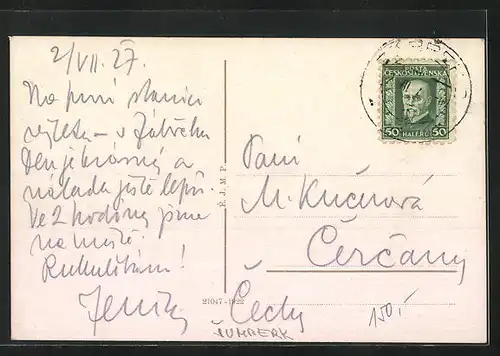 2/VII. 27.
Na první stanici
výletu – v Zábřehu
Den je krásný a
nálada ještě lepší.
Ve 2 hodiny jsme
na místě.
Rukulíbám!
Jeník
F. J. M. P.
21047-1922
POŠTA
ČESKOSLOVENSKÁ
50 HALÉŘŮ 50
Paní
M. Kučerová
Čerčany
Čechy
ŠUMBERK
150,-